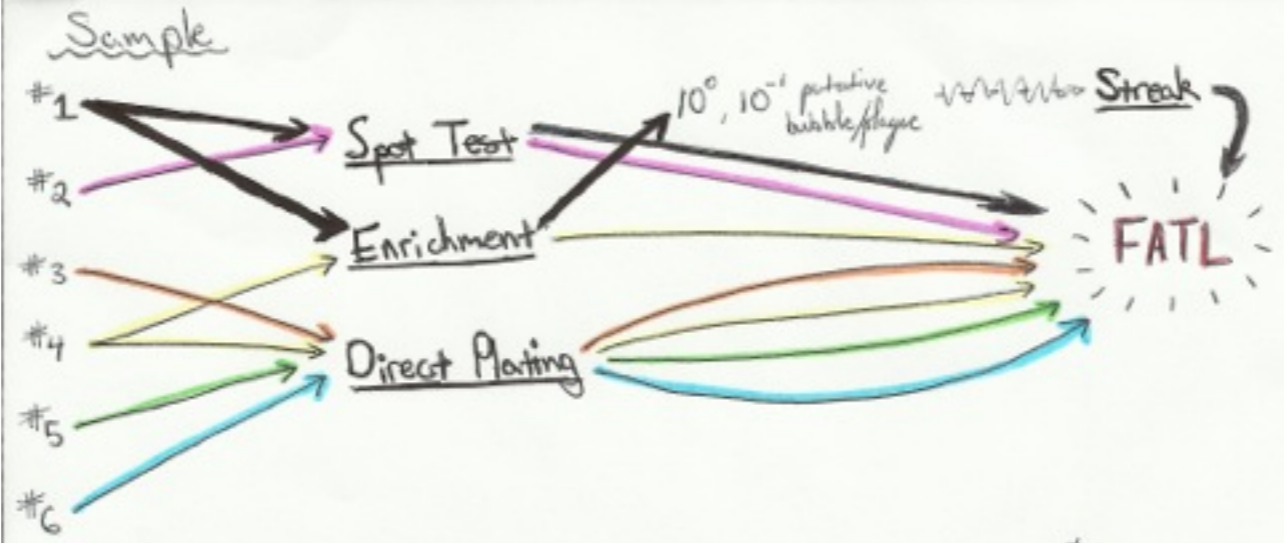 Sample
#1
#2
#3
#4
#5
#6
Spot Test
Enrichment
Direct Plating
10⁰, 10⁻¹ putative
bubble/plaque
Streak
FATL